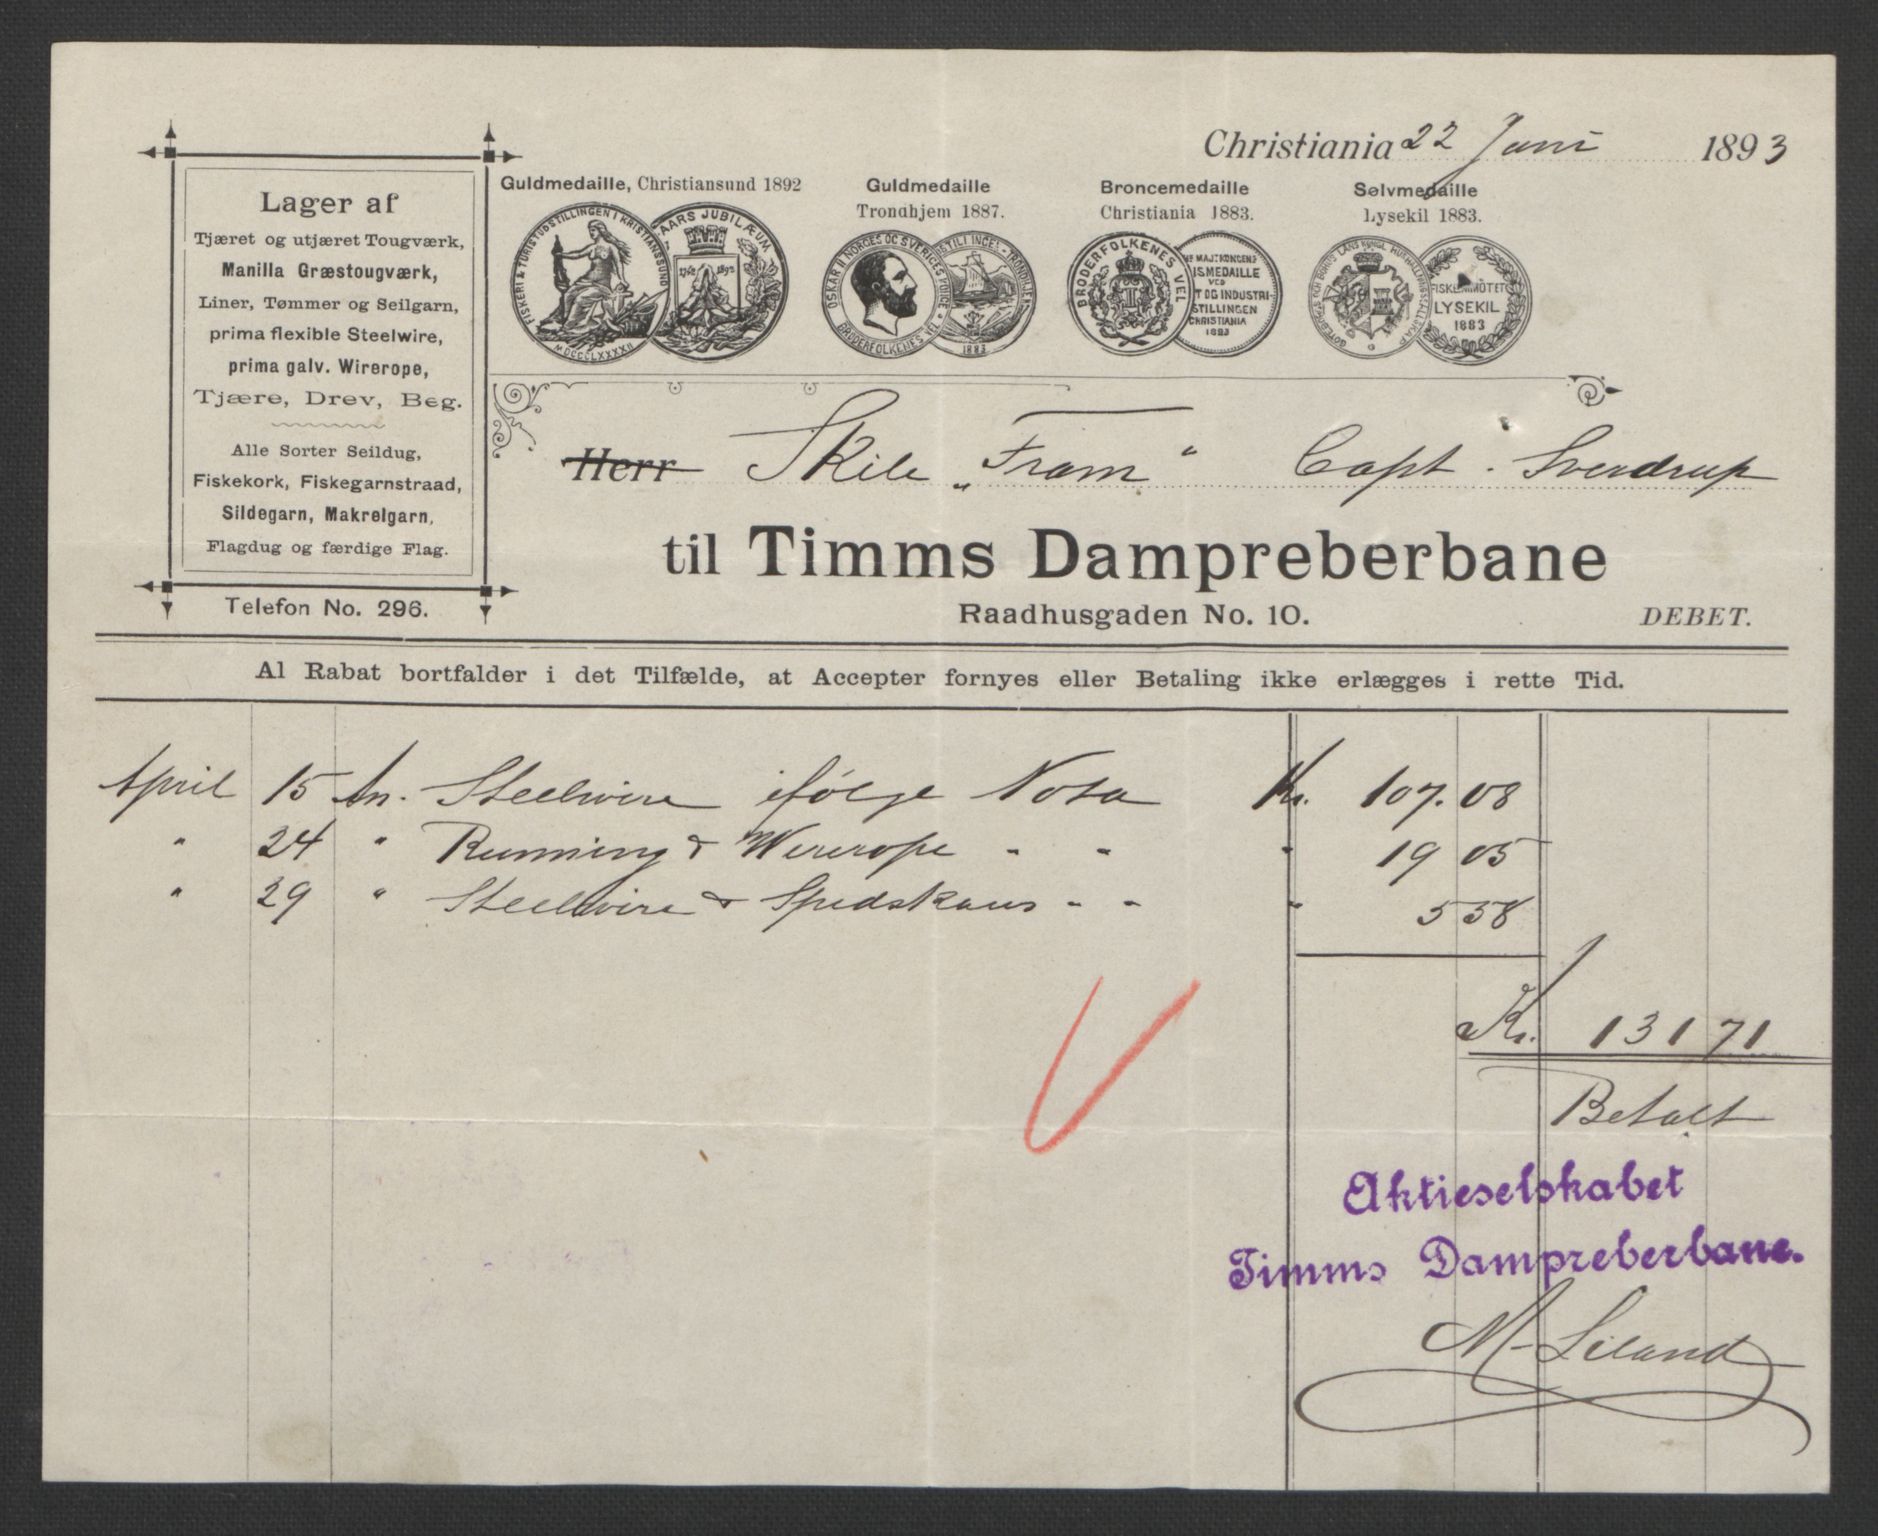 Christiania 22 Juni 1893
Lager af
Tjæret og utjæret Tougværk,
Manilla Græstougværk,
Liner, Tømmer og Seilgarn,
prima flexible Steelwire,
prima galv. Wirerope,
Tjære, Drev, Beg.
Alle Sorter Seildug,
Fiskekork, Fiskegarnstraad,
Sildegarn, Makrelgarn,
Flagdug og færdige Flag.
Telefon No. 296.
Guldmedaille, Christiansund 1892
FISKERI & TURISTUDSTILLINGEN I KRISTIANSSUND
MDCCCLXXXXII
AARS JUBILÆUM
1742 1892
Guldmedaille
Trondhjem 1887.
OSKAR II NORGES OG SVERIGES
BRODERFOLKENES VEL
1883
Broncemedaille
Christiania 1883.
BRODERFOLKENES VEL
MAJT KONGENS
ISMEDAILLE
VED
T OG INDUSTRI-
STILLINGEN
CHRISTIANIA
1883
Sølvmedaille
Lysekil 1883.
LYSEKIL
1883
Herr Skib „Fram“ Capt. Sverdrup
til Timms Dampreberbane
Raadhusgaden No. 10.
DEBET.
Al Rabat bortfalder i det Tilfælde, at Accepter fornyes eller Betaling ikke erlægges i rette Tid.
April 15 An. Steelwire ifølge Nota Kr. 107.08
" 24 " Running & Wirerope " " " 19 05
" 29 " Steelwire & Spidskaus " " " 5 58
Kr. 131 71
Betalt
Aktieselskabet
Timms Dampreberbane.
M. Liland